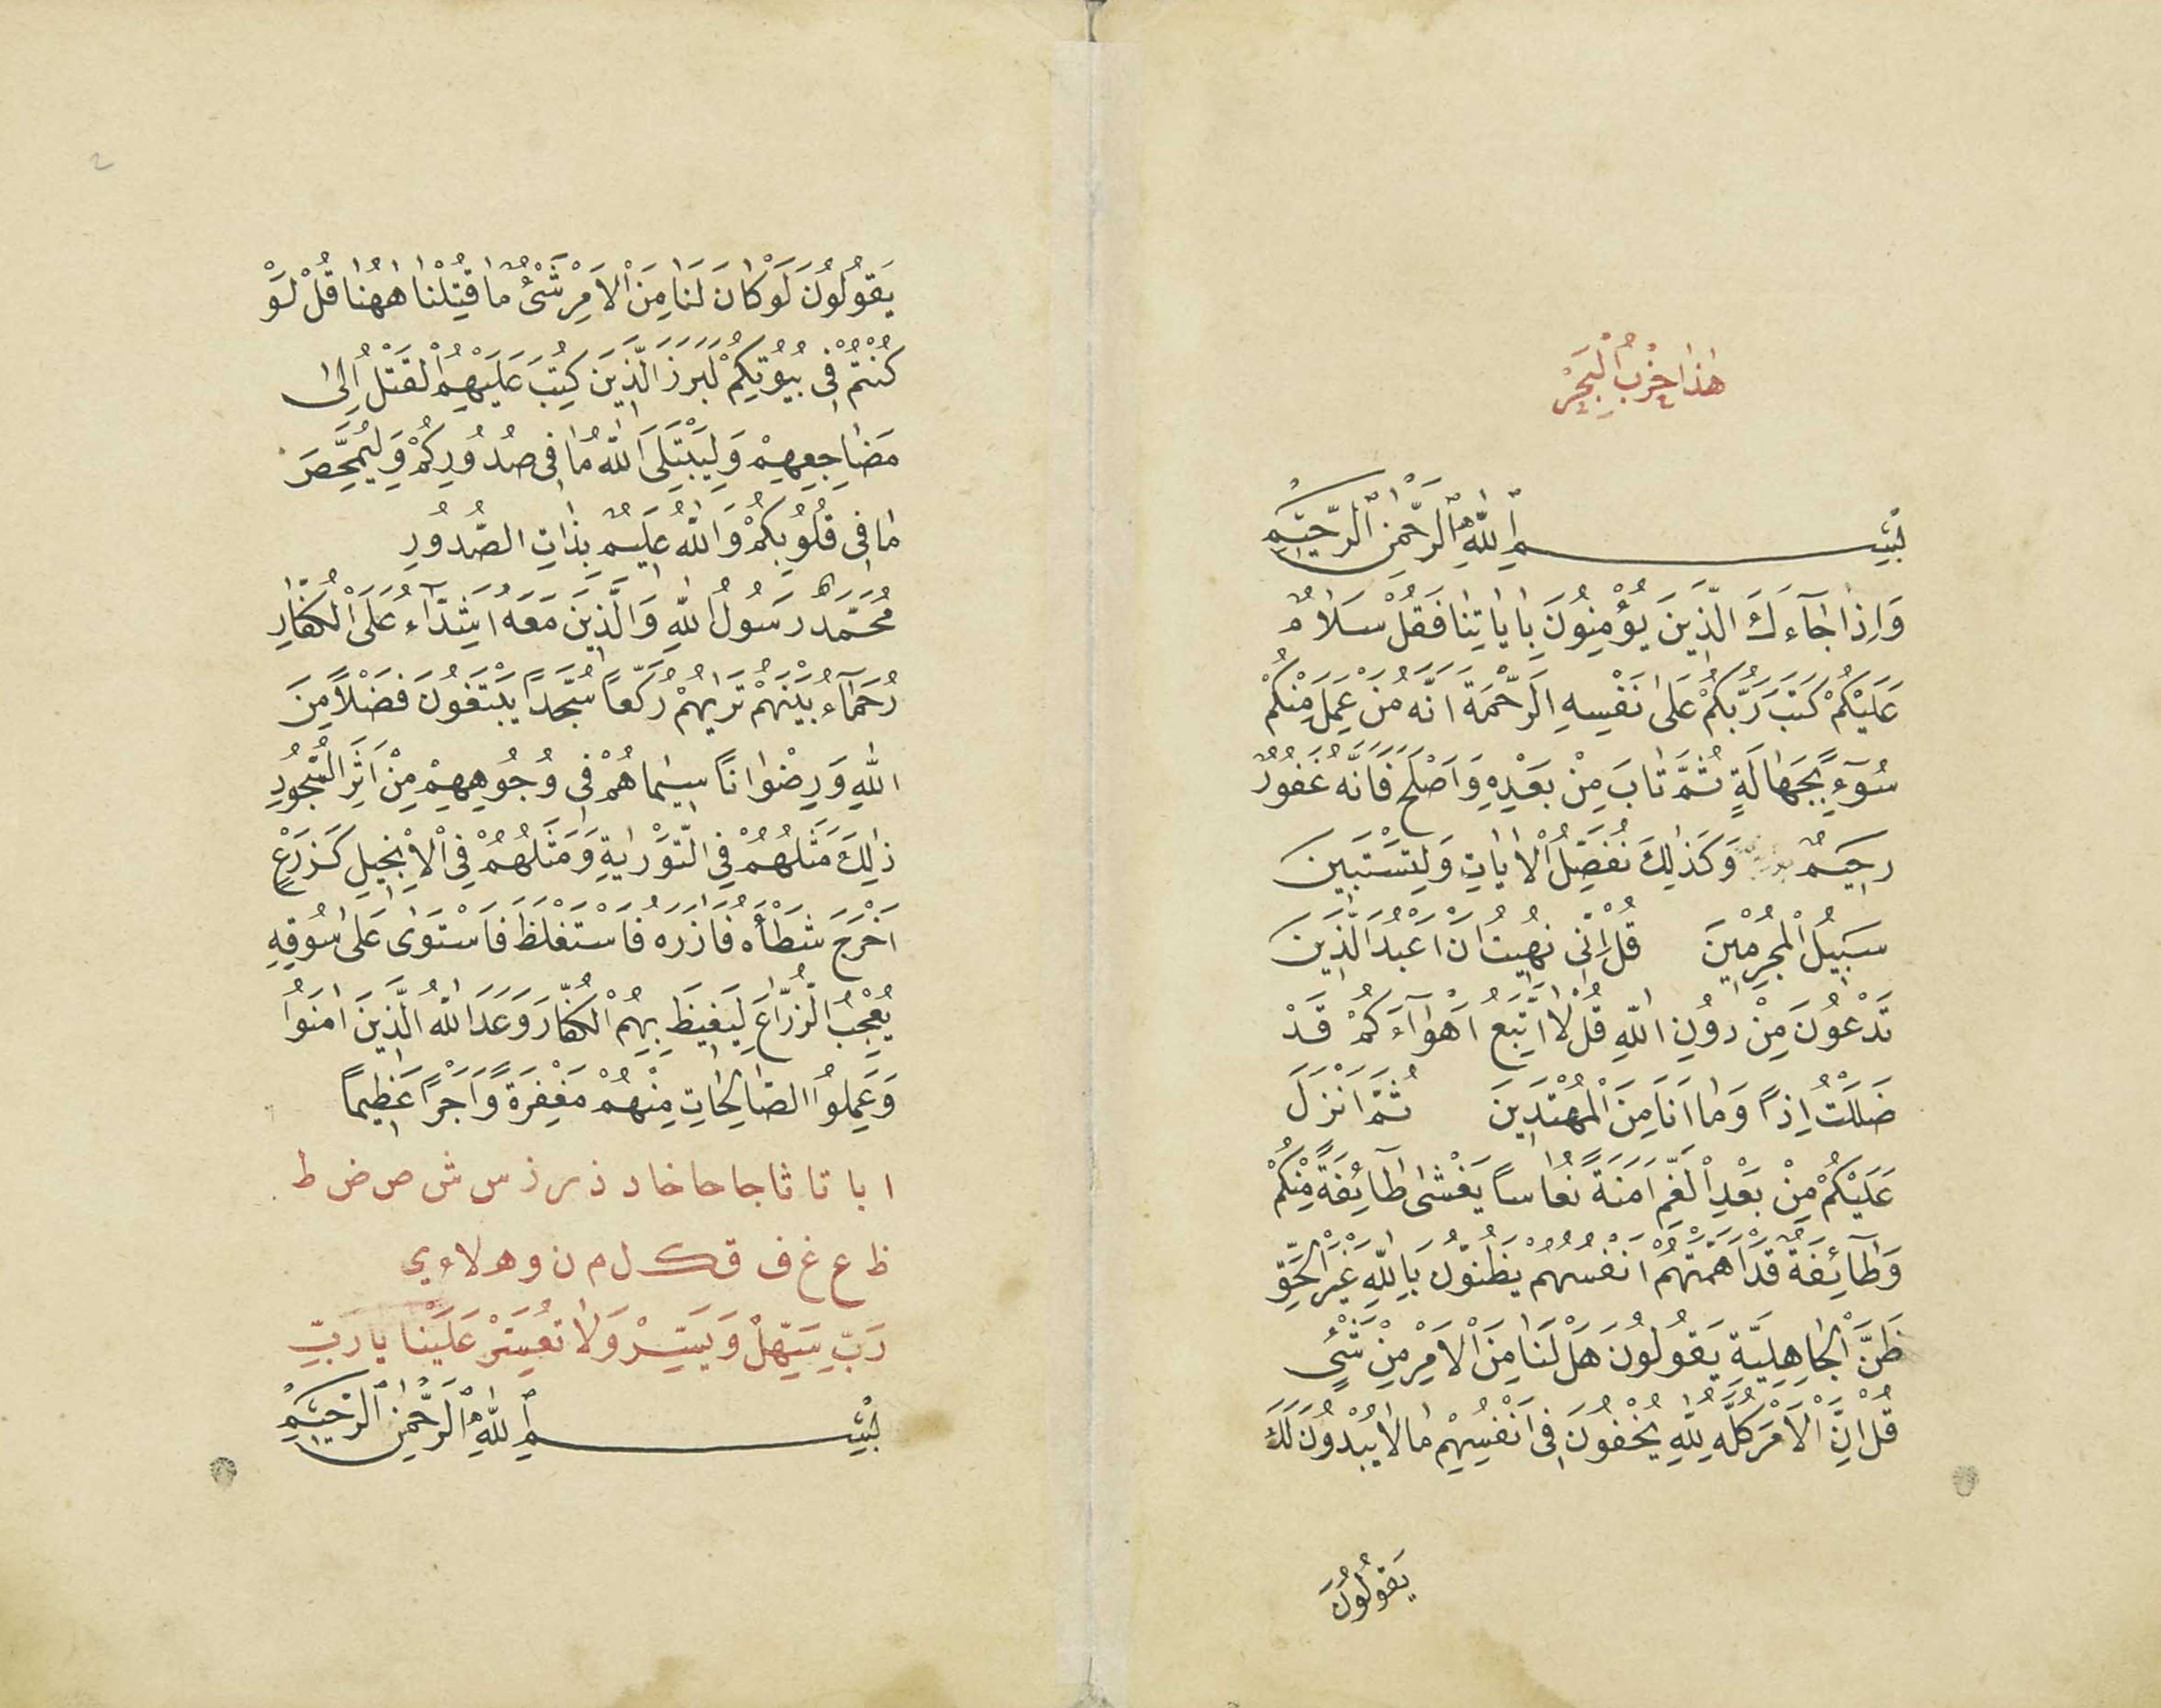 هٰذَا حِزْبُ الْبَحْرِ
بِسْمِ اللّٰهِ الرَّحْمٰنِ الرَّحِيمِ
وَاِذَا جَآءَكَ الَّذِينَ يُؤْمِنُونَ بِاٰيَاتِنَا فَقُلْ سَلَامٌ
عَلَيْكُمْ كَتَبَ رَبُّكُمْ عَلٰى نَفْسِهِ الرَّحْمَةَ اَنَّهُ مَنْ عَمِلَ مِنْكُمْ
سُوٓءًا بِجَهَالَةٍ ثُمَّ تَابَ مِنْ بَعْدِهِ وَاَصْلَحَ فَاَنَّهُ غَفُورٌ
رَحِيمٌ وَكَذٰلِكَ نُفَصِّلُ الْاٰيَاتِ وَلِتَسْتَبِينَ
سَبِيلُ الْمُجْرِمِينَ قُلْ اِنِّى نُهِيتُ اَنْ اَعْبُدَ الَّذِينَ
تَدْعُونَ مِنْ دُونِ اللّٰهِ قُلْ لَا اَتَّبِعُ اَهْوَآءَكُمْ قَدْ
ضَلَلْتُ اِذًا وَمَا اَنَا مِنَ الْمُهْتَدِينَ ثُمَّ اَنْزَلَ
عَلَيْكُمْ مِنْ بَعْدِ الْغَمِّ اَمَنَةً نُعَاسًا يَغْشٰى طَآئِفَةً مِنْكُمْ
وَطَآئِفَةٌ قَدْ اَهَمَّتْهُمْ اَنْفُسُهُمْ يَظُنُّونَ بِاللّٰهِ غَيْرَ الْحَقِّ
ظَنَّ الْجَاهِلِيَّةِ يَقُولُونَ هَلْ لَنَا مِنَ الْاَمْرِ مِنْ شَىْءٍ
قُلْ اِنَّ الْاَمْرَ كُلَّهُ لِلّٰهِ يُخْفُونَ فِى اَنْفُسِهِمْ مَا لَا يُبْدُونَ لَكَ
يَقُولُونَ
يَقُولُونَ لَوْ كَانَ لَنَا مِنَ الْاَمْرِ شَىْءٌ مَا قُتِلْنَا هٰهُنَا قُلْ لَوْ
كُنْتُمْ فِى بُيُوتِكُمْ لَبَرَزَ الَّذِينَ كُتِبَ عَلَيْهِمُ الْقَتْلُ اِلٰى
مَضَاجِعِهِمْ وَلِيَبْتَلِىَ اللّٰهُ مَا فِى صُدُورِكُمْ وَلِيُمَحِّصَ
مَا فِى قُلُوبِكُمْ وَاللّٰهُ عَلِيمٌ بِذَاتِ الصُّدُورِ
مُحَمَّدٌ رَسُولُ اللّٰهِ وَالَّذِينَ مَعَهُ اَشِدَّآءُ عَلَى الْكُفَّارِ
رُحَمَآءُ بَيْنَهُمْ تَرٰيهُمْ رُكَّعًا سُجَّدًا يَبْتَغُونَ فَضْلًا مِنَ
اللّٰهِ وَرِضْوَانًا سِيمَاهُمْ فِى وُجُوهِهِمْ مِنْ اَثَرِ السُّجُودِ
ذٰلِكَ مَثَلُهُمْ فِى التَّوْرٰيةِ وَمَثَلُهُمْ فِى الْاِنْجِيلِ كَزَرْعٍ
اَخْرَجَ شَطْأَهُ فَاٰزَرَهُ فَاسْتَغْلَظَ فَاسْتَوٰى عَلٰى سُوقِهِ
يُعْجِبُ الزُّرَّاعَ لِيَغِيظَ بِهِمُ الْكُفَّارَ وَعَدَ اللّٰهُ الَّذِينَ اٰمَنُوا
وَعَمِلُوا الصَّالِحَاتِ مِنْهُمْ مَغْفِرَةً وَاَجْرًا عَظِيمًا
ا با تا ثا جا حا خا د ذ ر ز س ش ص ض ط
ظ ع غ ف ق ك ل م ن و ه لا ء ي
رَبِّ سَهِّلْ وَيَسِّرْ وَلَا تُعَسِّرْ عَلَيْنَا يَا رَبِّ
بِسْمِ اللّٰهِ الرَّحْمٰنِ الرَّحِيمِ